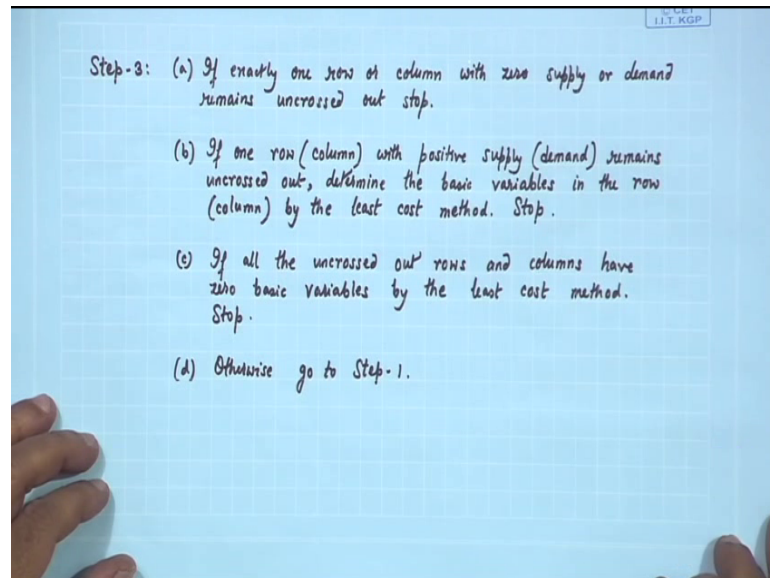 © CET
I.I.T. KGP
Step-3: (a) If exactly one row or column with zero supply or demand
remains uncrossed out stop.
(b) If one row (column) with positive supply (demand) remains
uncrossed out, determine the basic variables in the row
(column) by the least cost method. Stop.
(c) If all the uncrossed out rows and columns have
zero basic variables by the least cost method.
Stop.
(d) Otherwise go to Step-1.